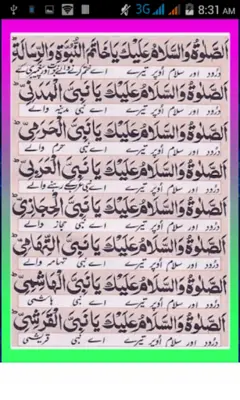 3G 8:31 AM
اَلصَّلٰوةُ وَالسَّلَامُ عَلَيْكَ يَا خَاتَمَ النُّبُوَّةِ وَالرِّسَالَةِ
درود اور سلام اُوپر تیرے اے
اَلصَّلٰوةُ وَالسَّلَامُ عَلَيْكَ يَا نَبِيَّ الْمَدَنِيِّ
درود اور سلام اُوپر تیرے اے نبی مدینہ والے
اَلصَّلٰوةُ وَالسَّلَامُ عَلَيْكَ يَا نَبِيَّ الْحَرَمِيِّ
درود اور سلام اُوپر تیرے اے نبی حرم والے
اَلصَّلٰوةُ وَالسَّلَامُ عَلَيْكَ يَا نَبِيَّ الْعَرَبِيِّ
درود اور سلام اُوپر تیرے اے نبی عرب کے رہنے والے
اَلصَّلٰوةُ وَالسَّلَامُ عَلَيْكَ يَا نَبِيَّ الْحِجَازِيِّ
درود اور سلام اُوپر تیرے اے نبی حجاز والے
اَلصَّلٰوةُ وَالسَّلَامُ عَلَيْكَ يَا نَبِيَّ التِّهَامِيِّ
درود اور سلام اُوپر تیرے اے نبی تہامہ والے
اَلصَّلٰوةُ وَالسَّلَامُ عَلَيْكَ يَا نَبِيَّ الْهَاشِمِيِّ
درود اور سلام اُوپر تیرے اے نبی ہاشمی
اَلصَّلٰوةُ وَالسَّلَامُ عَلَيْكَ يَا نَبِيَّ الْقُرَشِيِّ
درود اور سلام اُوپر تیرے اے نبی قریشی